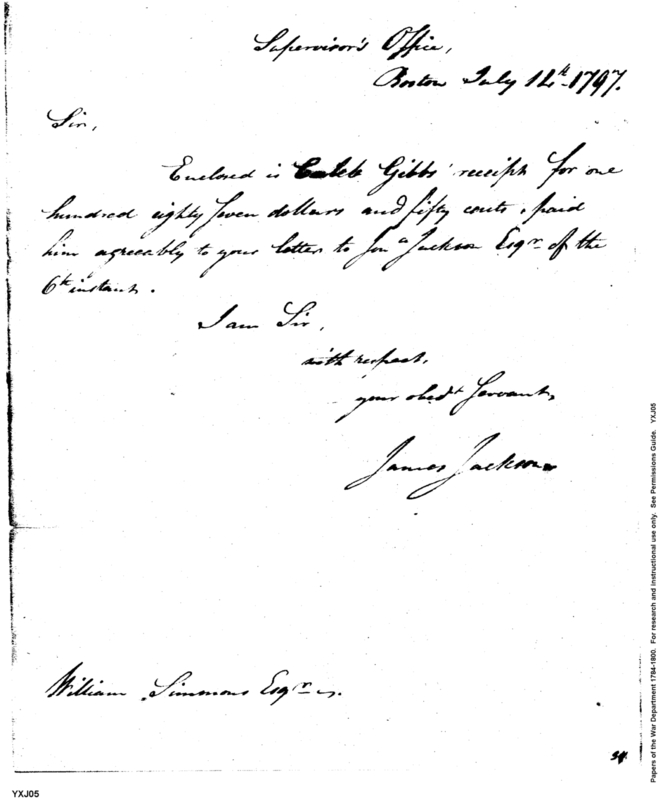 Supervisor's Office,
Boston July 14th 1797.
Sir,
Enclosed is Caleb Gibbs' receipt for one
hundred eighty seven dollars and fifty cents, paid
him agreeably to your letter to Jona Jackson Esqr of the
6th instant.
I am Sir,
with respect,
your obedt Servant,
James Jackson
William Simmons Esqr
Papers of the War Department 1784-1800. For research and instructional use only. See Permissions Guide. YXJ05
YXJ05